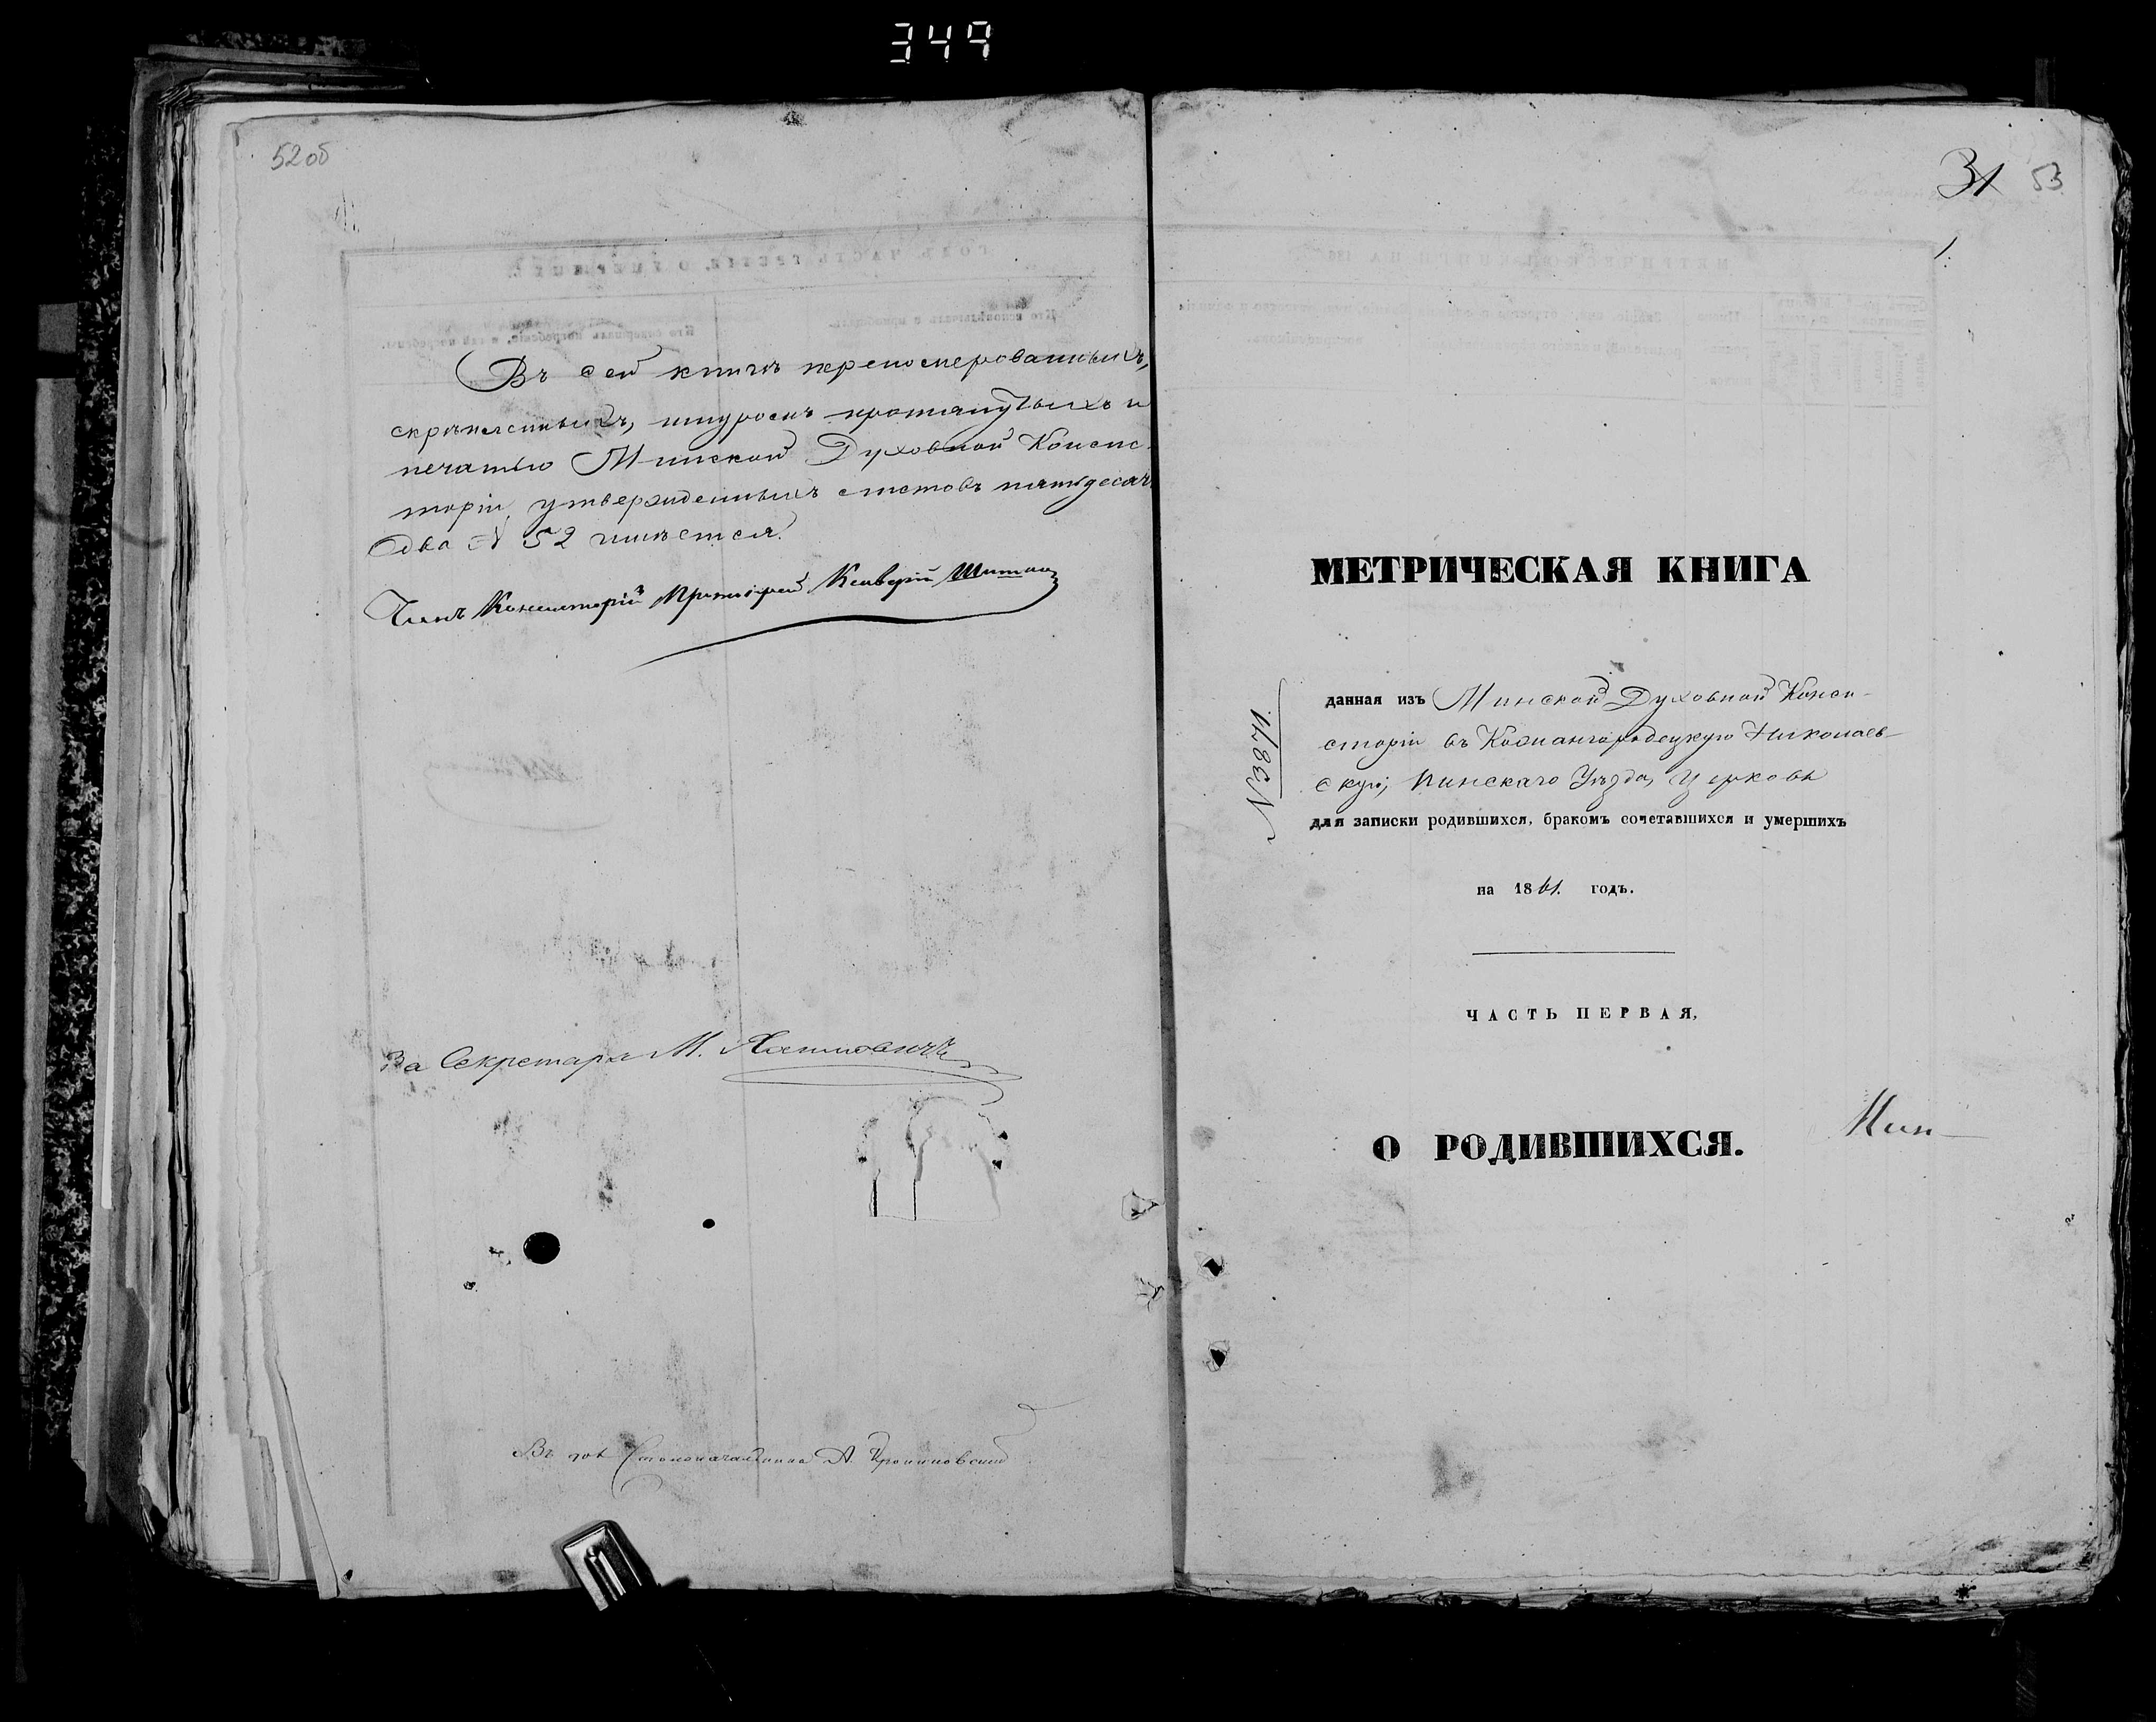 349
52 об
Въ сей книгѣ перепомерованныхъ,
скрѣпленныхъ, шнуромъ протянутыхъ и
печатью Минской Духовной Консис-
торіи утвержденныхъ листовъ пятьдесятъ
два № 52 имѣется.
Членъ Консисторіи Протоіерей
За Секретаря М.
Столоначальника А.
31 53
1.
МЕТРИЧЕСКАЯ КНИГА
данная изъ Минской Духовной Конси-
сторіи въ Кожангородецкую Николаев-
скую, Пинскаго Уѣзда, Церковь
для записки родившихся, бракомъ сочетавшихся и умершихъ
на 1861. годъ.
№ 8371.
ЧАСТЬ ПЕРВАЯ,
О РОДИВШИХСЯ.